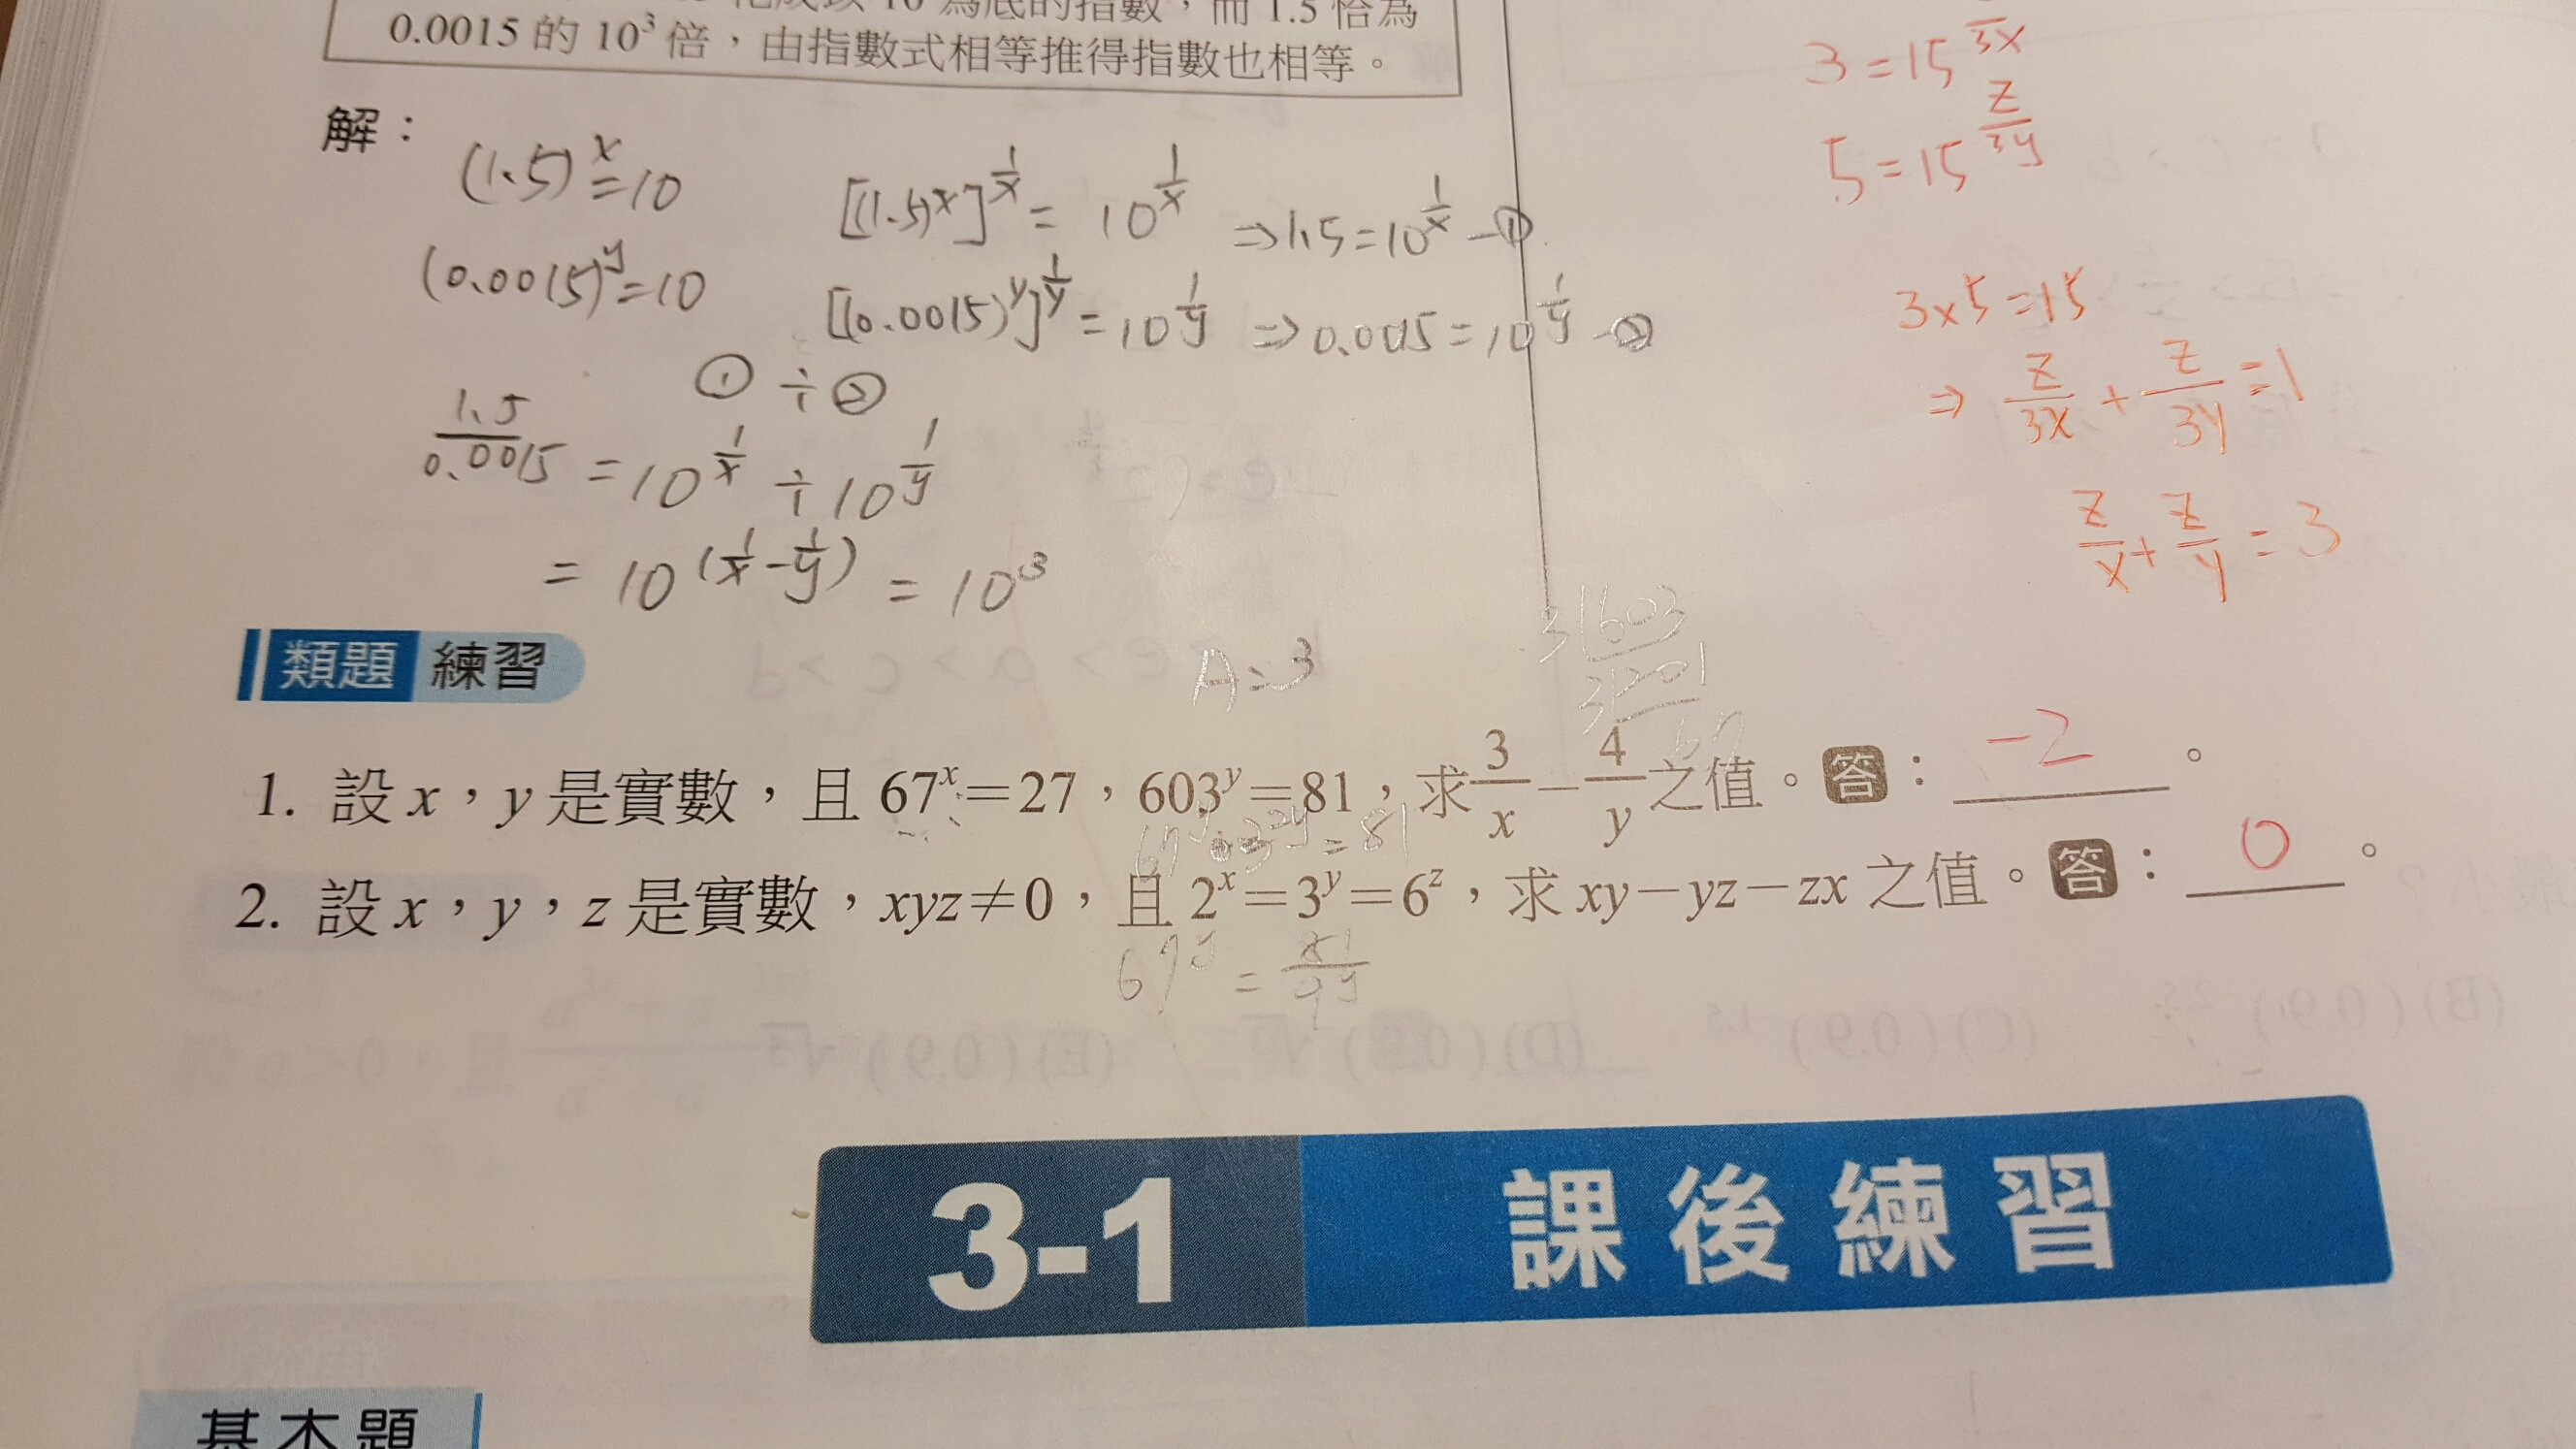 為底的指數，而 1.5 恰為
0.0015 的 10³ 倍，由指數式相等推得指數也相等。
解：
(1.5)^x = 10
[(1.5)^x]^(1/x) = 10^(1/x) ⇒ 1.5 = 10^(1/x) - ①
(0.0015)^y = 10
[(0.0015)^y]^(1/y) = 10^(1/y) ⇒ 0.0015 = 10^(1/y) - ②
① ÷ ②
1.5/0.0015 = 10^(1/x) ÷ 10^(1/y)
= 10^(1/x - 1/y) = 10^3
A = 3
3 = 15^(z/3x)
5 = 15^(z/3y)
3x5 = 15
⇒ z/3x + z/3y = 1
z/x + z/y = 3
3|603
3|201
67
類題 練習
1. 設 x，y 是實數，且 67^x=27，603^y=81，求 3/x － 4/y 之值。答：-2。
67^y·3^2y = 81
2. 設 x，y，z 是實數，xyz≠0，且 2^x=3^y=6^z，求 xy－yz－zx 之值。答：0。
67^y = 81/9^y
3-1 課後練習
基本題